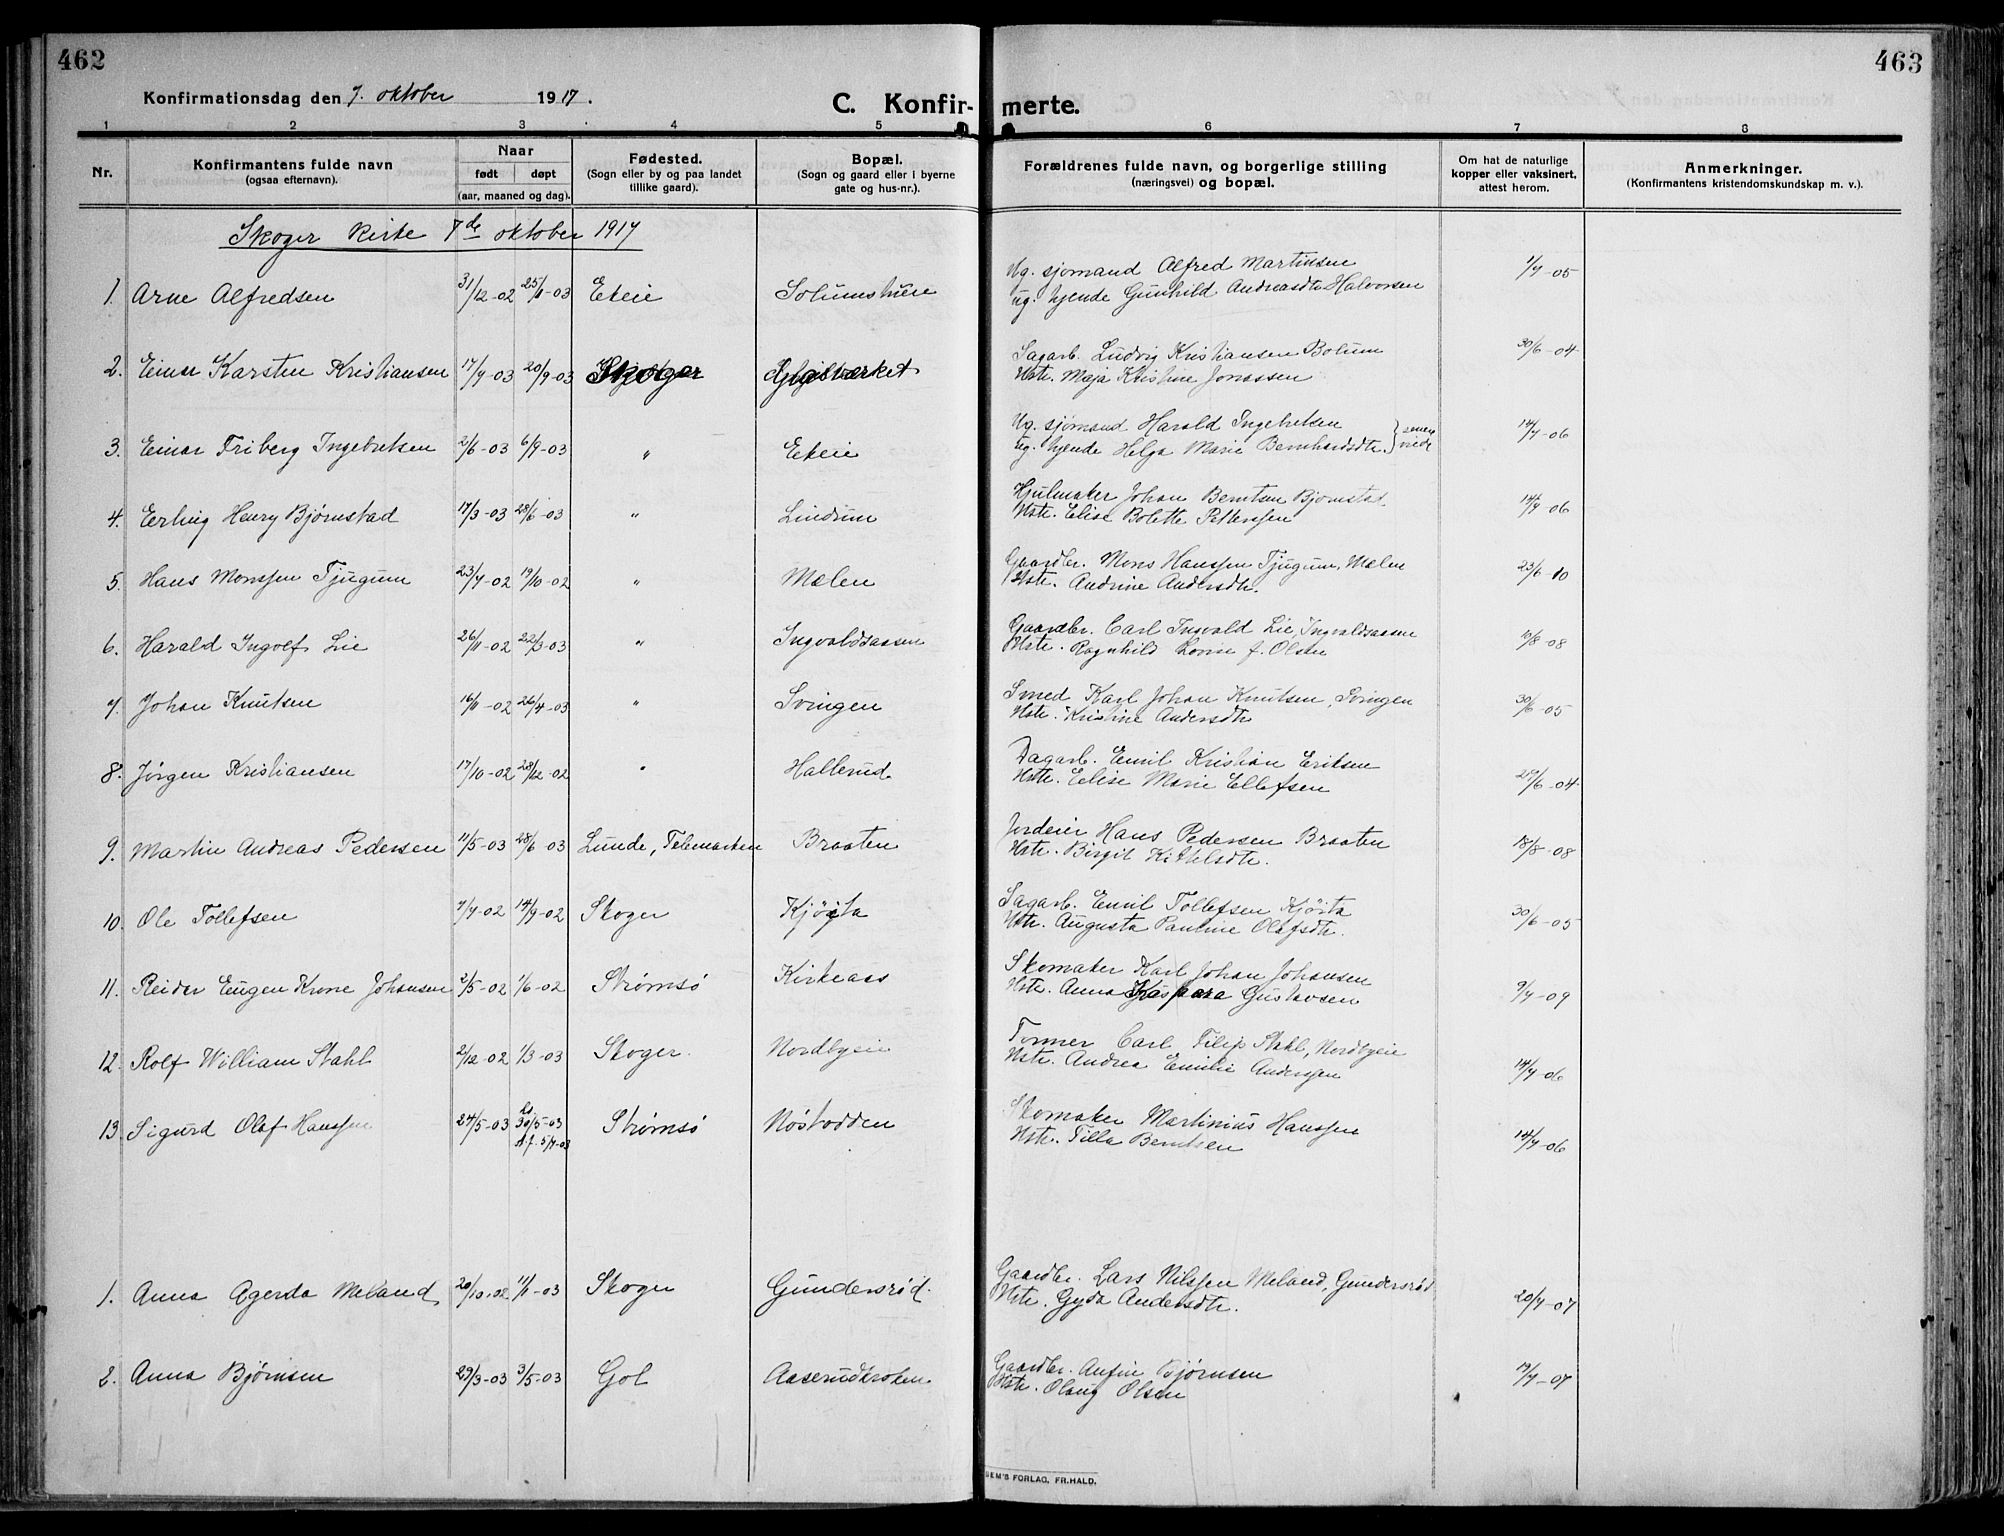 462
463
Konfirmationsdag den 7. oktober 1917.
C. Konfir- merte.
1 2 3 4 5 6 7 8
Nr.
Konfirmantens fulde navn
(ogsaa efternavn).
Naar
født døpt
(aar, maaned og dag).
Fødested.
(Sogn eller by og paa landet
tillike gaard).
Bopæl.
(Sogn og gaard eller i byerne
gate og hus-nr.).
Forældrenes fulde navn, og borgerlige stilling
(næringsvei) og bopæl.
Om hat de naturlige
kopper eller vaksinert,
attest herom.
Anmerkninger.
(Konfirmantens kristendomskundskap m. v.).
Skoger Kirke 7de oktober 1917
1. Arne Alfredsen 31/12-02 25/1-03 Ekeie
Ug. sjømand Alfred Martinsen 1/7-05
ug. tjende Gunhild Andreasdtr Halvorsen
2. Einar Karsten Kristiansen 17/7-03 20/9-03 Skoger
Sagarb. Ludvig Kristiansen Bolum 30/6-04
Hstr. Maja Kristine Jonassen
3. Einar Friberg Ingebretsen 2/6-03 6/9-03 " Ekeie
Ug. sjømand Harald Ingebretsen 14/7-06
ug. tjende Helga Marie Bernhardsdtr.
4. Erling Henry Bjørnstad 17/3-03 28/6-03 " Lindum
Hjulmaker Johan Berntsen Bjørnstad. 14/7-06
Hstr. Elise Bolette Pettersen
5. Hans Monssen Tjugum 23/7-02 19/10-02 " Mælen
Gaardbr. Mons Hanssen Tjugum, Mælen 23/6-10
Hstr. Andrine Andersdtr.
6. Harald Ingolf Lie 26/11-02 22/3-03 " Ingvaldsaasen
Gaardbr. Carl Ingvald Lie, Ingvaldsaasen 10/8-08
Hstr. Ragnhild Lovise f. Olsen
7. Johan Knutsen 16/11-02 26/4-03 " Svingen
Smed Karl Johan Knutsen, Svingen 30/6-05
Hstr. Kristine Andersdtr
8. Jørgen Kristiansen 17/10-02 28/12-02 " Hallerud
Dagarb. Emil Kristian Eriksen 29/6-04
Hstr. Elise Marie Ellefsen
9. Martin Andreas Pedersen 11/5-03 28/6-03 Lunde, Telemarken Braaten
Jordeier Hans Pedersen Braaten 18/8-08
Hstr. Birgit Kittelsdtr.
10. Ole Tollefsen 7/7-02 14/9-02 Skoger Kjøsta
Sagarb. Emil Tollefsen Kjøsta 30/6-05
Hstr. Augusta Pauline Olafsdtr.
11. Reidar Eugen Krone Johansen 2/5-02 1/6-02 Strømsø Kirkeaas
Skomaker Karl Johan Johansen 9/7-09
Hstr. Anna Kaspara Gustavsen
12. Rolf William Stahl 2/12-02 1/3-03 Skoger. Nordbyeie
Former Carl Filip Stahl, Nordbyeie 14/7-06
Hstr. Andrea Emilie Anderssen
13. Sigurd Olaf Hanssen 24/5-03 30/5-03 Strømsø Nøstodden
Af. 5/7-03
Skomaker Martinius Hanssen 14/7-06
Hstr. Tilla Berntsen
1. Anna Agerda Meland 20/10-02 11/1-03 Skoger Gundersrød.
Gaardbr. Lars Nilssen Meland, Gundersrød 20/7-07
Hstr. Gyda Andersdtr.
2. Anna Bjørnsen 29/3-03 3/5-03 Gol Aaserudkroken
Gaardbr. Anfin Bjørnsen 19/7-07
Hstr. Olaug Olsen
SEM'S FORLAG, FR.HALD.